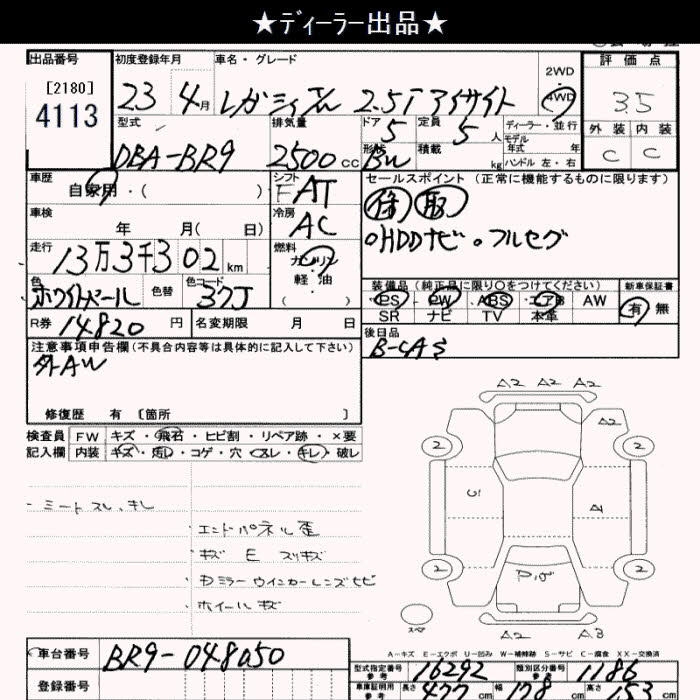 ★ディーラー出品★
出品番号 初度登録年月 車名・グレード 2WD 評価点
[2180] 4113
23 4月 レガシィワゴン 2.5i アイサイト 4WD 3.5
型式 排気量 ドア 定員 ディーラー・並行 外装 内装
DBA-BR9 2500cc 5 5人 モデル年式 年 C C
形状 BW 積載 kg ハンドル 左・右
車歴 シフト セールスポイント (正常に機能するものに限ります)
自家用・( ) FAT 保 取
車検 冷房
年 月( 日) AC ○HDDナビ ○フルセグ
走行 燃料
13万3千302km ガソリン
軽油
色 色替 色コード 装備品(純正品に限り○をつけてください) 新車保証書
ホワイトパール 37J PS・PW・ABS・エアB AW 有 無
SR ナビ TV 本革
R券 14820円 名変期限 月 日 後日品
B-CAS
注意事項申告欄(不具合内容等は具体的に記入して下さい)
外AW
修復歴 有 [箇所 ]
検査員 FW キズ・飛石・ヒビ割・リペア跡・×要
記入欄 内装 キズ・汚レ・コゲ・穴・スレ・キレ・破レ
・シートスレ、キレ
・エンドパネル歪
・キズ E スリキズ
・ホイールキズ
A2 A2 A2
A2
2 2
2 2
スペア
A2 A3
A-キズ E-エクボ U-凹み W-補修跡 S-サビ C-腐食 XX-交換済
車台番号 BR9-048050 型式指定番号 参考 16292 類別区分番号 参考 1186
登録番号 車庫証明用 参考 長さ 477cm 幅 178cm 高さ 153cm